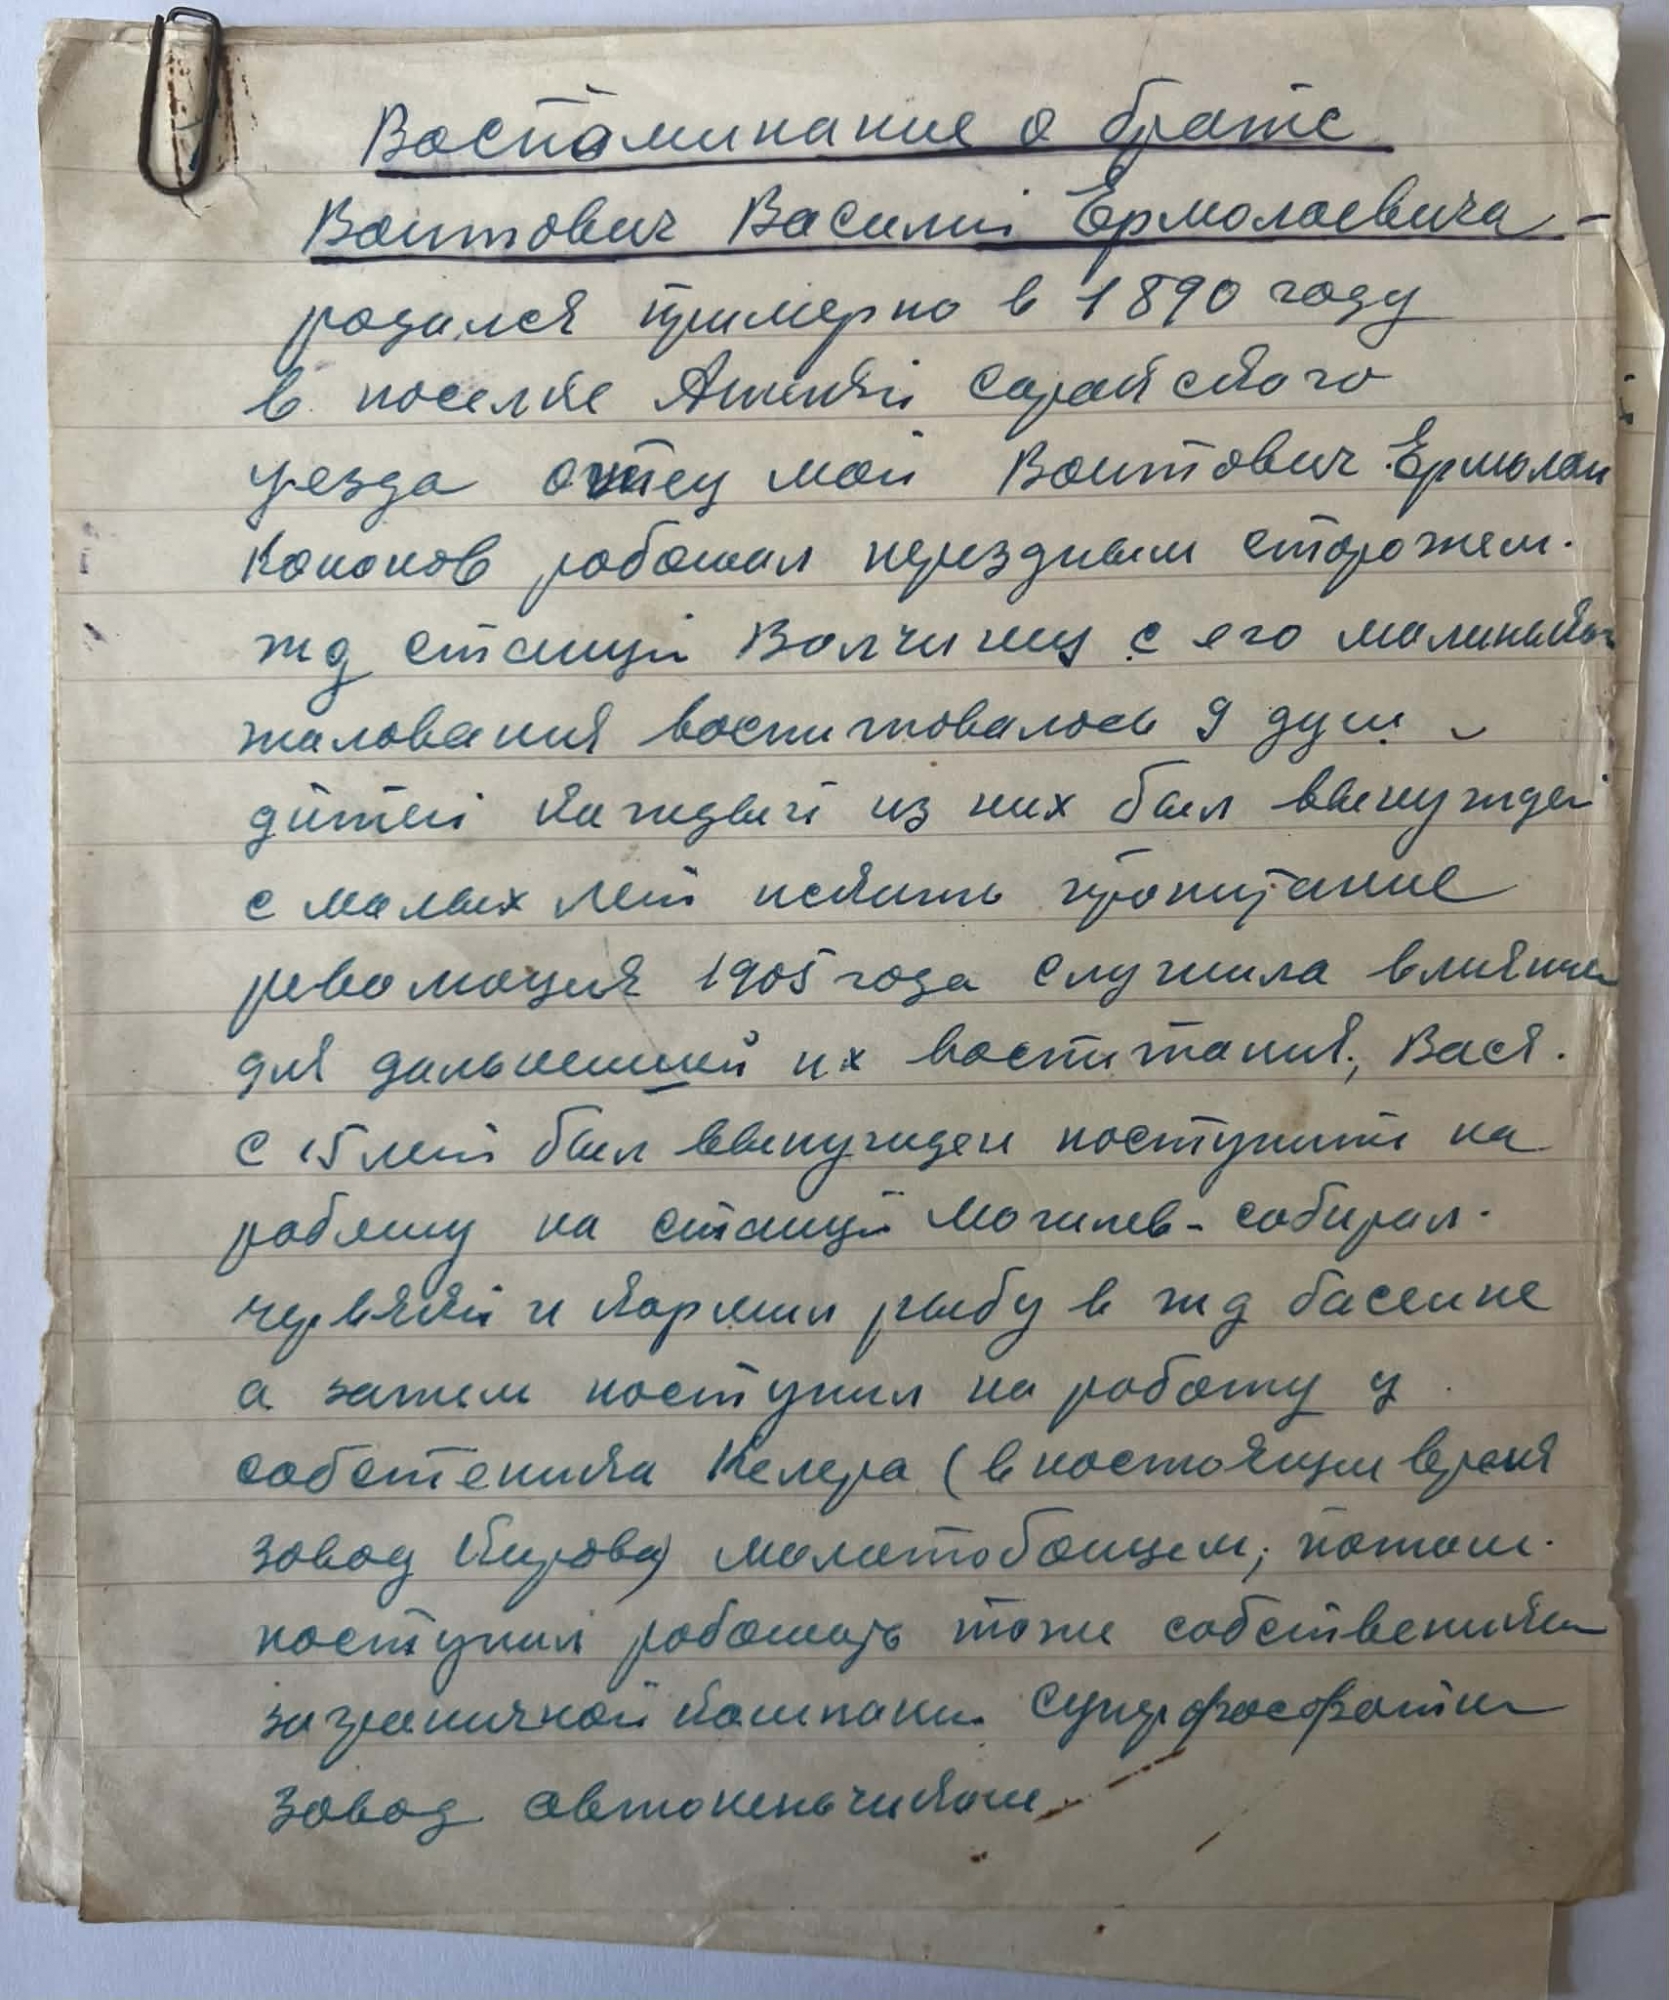 Воспоминание о брате
Воитович Василий Ермолаевича -
родился примерно в 1890 году
в поселке Сарайского
уезда отец мой Воитович Ермолаи
Кононов работал переездным сторожем.
жд станции Волчинец с его малинького
жалования воспитовалось 9 душ
дитей каждый из них был вынужден
с малых лет искать пропитание
революция 1905 года служила влияние
для дальнейшей их воспитания, Вася.
с 15 лет был вынужден поступить на
работу на станции Могилев - собирал.
червякей и кормил рыбу в жд басеине
а затем поступил на работу у
собственика Келера (в настоящем время
завод Кирова) молотобоицем, потом.
поступил работать тоже собствеником
заграничной компании Суперфосфатни
завод автогеньчиком